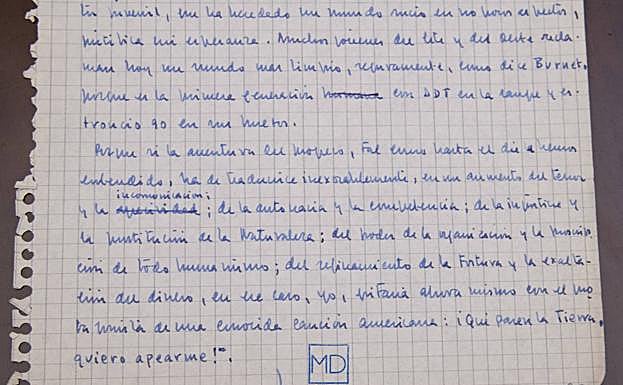 juvenil, que ha heredado un mundo sucio en no pocos aspectos,
justifica mi esperanza. Muchos jóvenes del este y del oeste recla-
man hoy un mundo mas limpio, seguramente, como dice Burnet,
porque es la primera generación humana con DDT en la sangre y es-
troncio 90 en sus huesos.
Porque si la aventura del progreso, tal como hasta el dia la hemos
entendido, ha de traducirse inexorablemente, en un aumento del temor
incomunicacion;
y la agresividad; de la autocracia y la competencia; de la injusticia y
la prostitución de la Naturaleza; del poder de la organización y la proscrip-
ción de todo humanismo; del refinamiento de la tortura y la exalta-
ción del dinero, en ese caso, yo, gritaria ahora mismo con el pro-
tagonista de una conocida canción americana: ¡Que paren la Tierra,
quiero apearme!".
MD